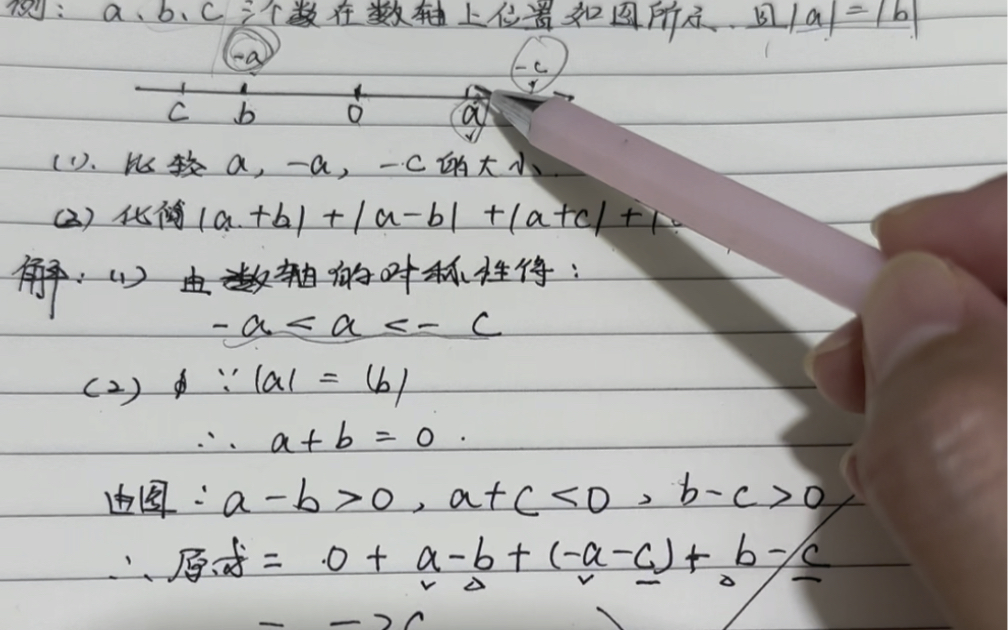 例：a、b、c三个数在数轴上位置如图所示 且|a|=|b|
-a -c
c b 0 a
(1). 比较 a, -a, -c 的大小.
(2) 化简 |a+b| + |a-b| + |a+c| + |
解：(1) 由数轴的对称性得：
-a < a < -c
(2) ∵ |a| = |b|
∴ a+b = 0 .
由图：a-b>0, a+c<0, b-c>0
∴ 原式 = 0 + a-b + (-a-c) + b-c
= -2c